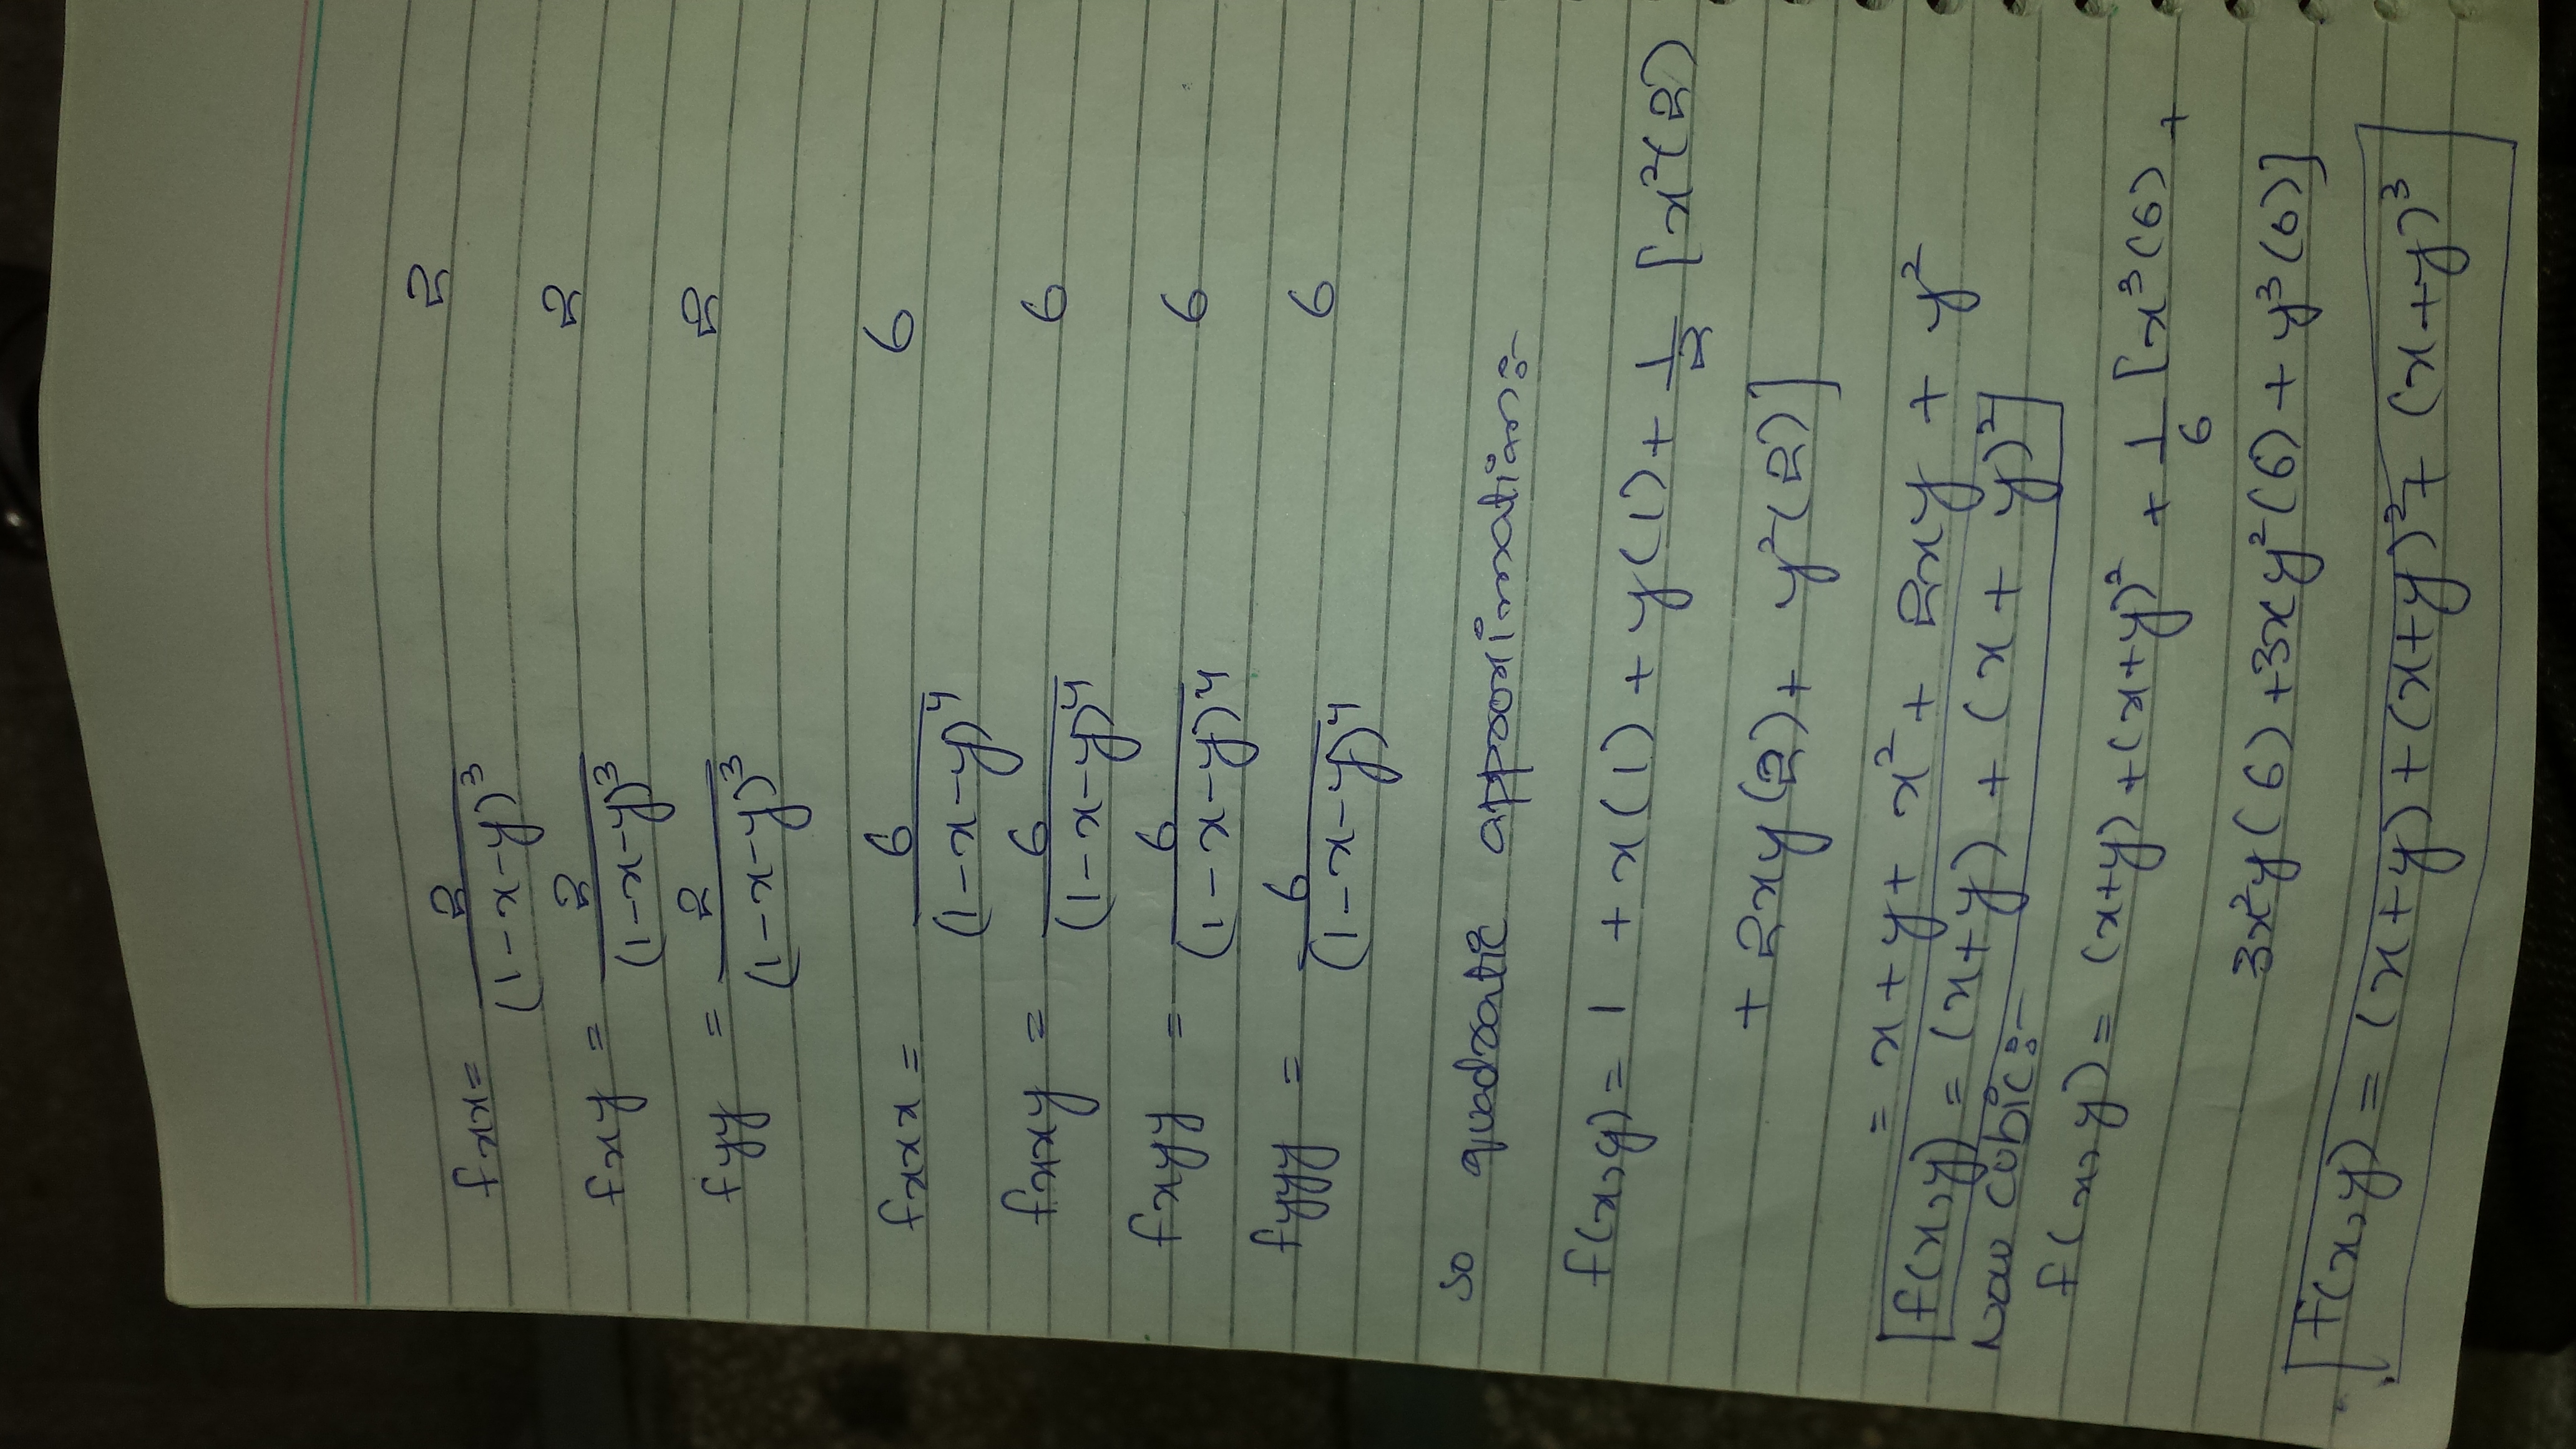 fxx = 2/(1-x-y)³ 2
fxy = 2/(1-x-y)³ 2
fyy = 2/(1-x-y)³ 2
fxxx = 6/(1-x-y)⁴ 6
fxxy = 6/(1-x-y)⁴ 6
fxyy = 6/(1-x-y)⁴ 6
fyyy = 6/(1-x-y)⁴ 6
so quadratic approximation:-
f(x,y) = 1 + x(1) + y(1) + 1/2 [x²(2)
+ 2xy(2) + y²(2)]
= x + y + x² + 2xy + y²
f(x,y) = (x+y) + (x+y)²
Now cubic:-
f(x,y) = (x+y) + (x+y)² + 1/6 [x³(6) +
3x²y(6) + 3xy²(6) + y³(6)]
f(x,y) = (x+y) + (x+y)² + (x+y)³